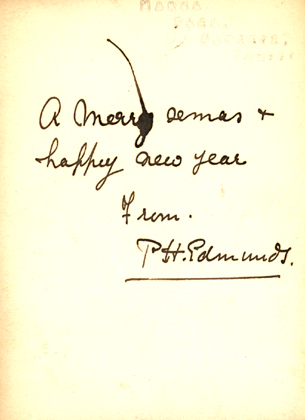 A Merry xmas +
happy new year
From.
P.H. Edmunds.